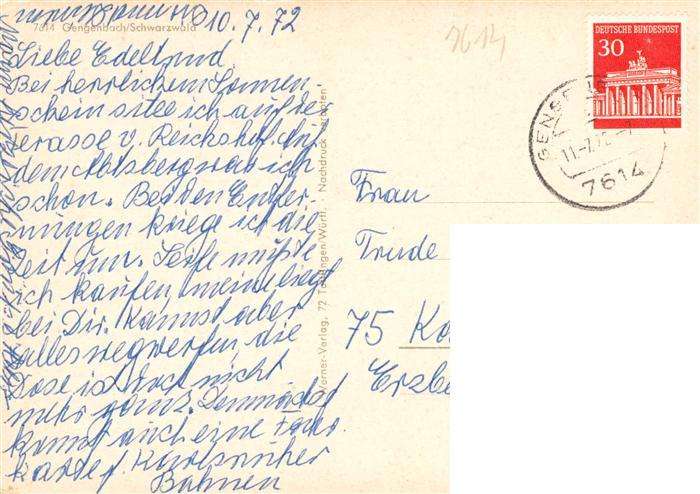 10.7.72
7614 Gengenbach/Schwarzwald
Liebe Edeltrud.
Bei herrlichem Sonnen
schein sitze ich auf de
terasse v. Reichshof. Auf
dem Abtsberg war ich
schon. Bei den Entfer-
nungen kriege ich die
Zeit rum. Seife mußte
ich kaufen, meine liegt
bei Dir. Kannst aber
alles wegwerfen, die
Dose ist doch nicht
mehr ganz. Donnerstag
kannst auch eine
karte f. Karlsruher
Bahnen
Werner-Verlag, 72 Tuttlingen/Württ. · Nachdruck verboten
7614
DEUTSCHE BUNDESPOST
30
7614
Frau
Trude
75 Ka
Erzbe